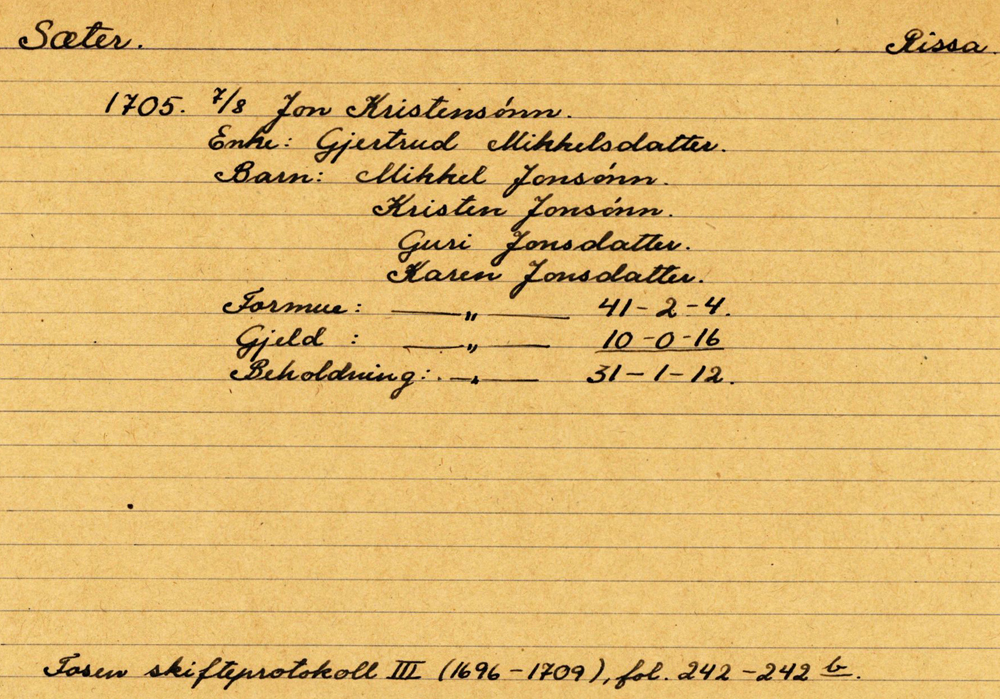 Sæter. Rissa.
1705. 7/8 Jon Kristensónn.
Enke: Gjertrud Mikkelsdatter.
Barn: Mikkel Jonsónn.
Kristen Jonsónn.
Guri Jonsdatter.
Karen Jonsdatter.
Formue: — „ — 41-2-4.
Gjeld : — „ — 10-0-16
Beholdning: — „ — 31-1-12.
Fosen skifteprotokoll III (1696-1709), fol. 242-242 b.